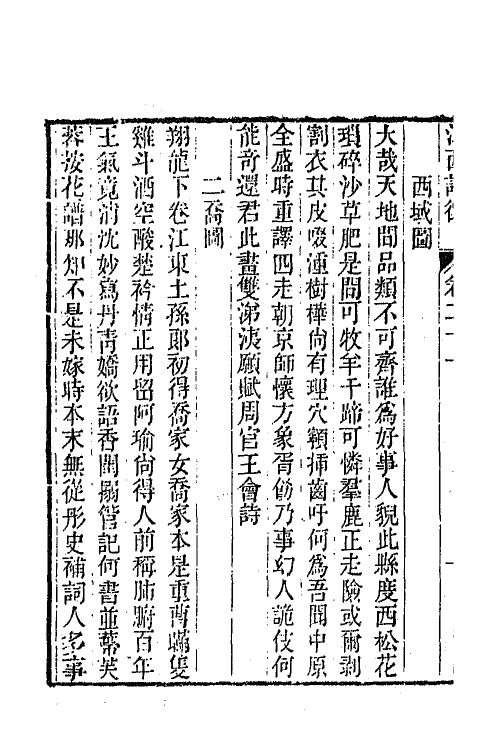 西域圖
大哉天地間品類不可齊誰為好事人貌此縣度西松花
瑣碎沙草肥是間可牧羊千蹄可憐羣鹿正走險或爾剥
割衣其皮啜湩樹樺尙有理穴顙揷齒吁何為吾聞中原
全盛時重譯四走朝京師懷方象胥飭乃事幻人詭伎何
能奇還君此畫雙涕洟願賦周官王會詩
二喬圖
翔龍下卷江東土孫郎初得喬家女喬家本是重
雞斗酒空酸楚衿情正用留阿瑜尙得人前稱肺腑百年
王氣竟消沈妙寫丹靑嬌欲語香閨
管記何書並葉芙
蓉按花譜那知不是未嫁時本末無從彤史補詞人多事